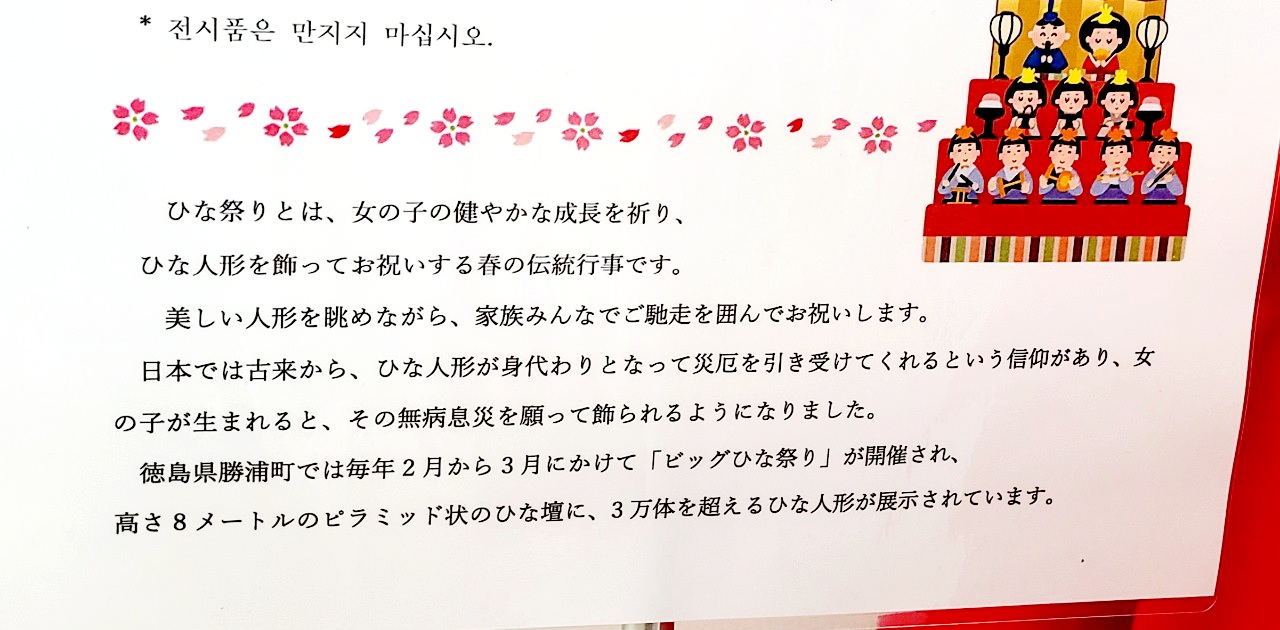 * 전시품은 만지지 마십시오.
ひな祭りとは、女の子の健やかな成長を祈り、
ひな人形を飾ってお祝いする春の伝統行事です。
美しい人形を眺めながら、家族みんなでご馳走を囲んでお祝いします。
日本では古来から、ひな人形が身代わりとなって災厄を引き受けてくれるという信仰があり、女
の子が生まれると、その無病息災を願って飾られるようになりました。
徳島県勝浦町では毎年2月から3月にかけて「ビッグひな祭り」が開催され、
高さ8メートルのピラミッド状のひな壇に、3万体を超えるひな人形が展示されています。